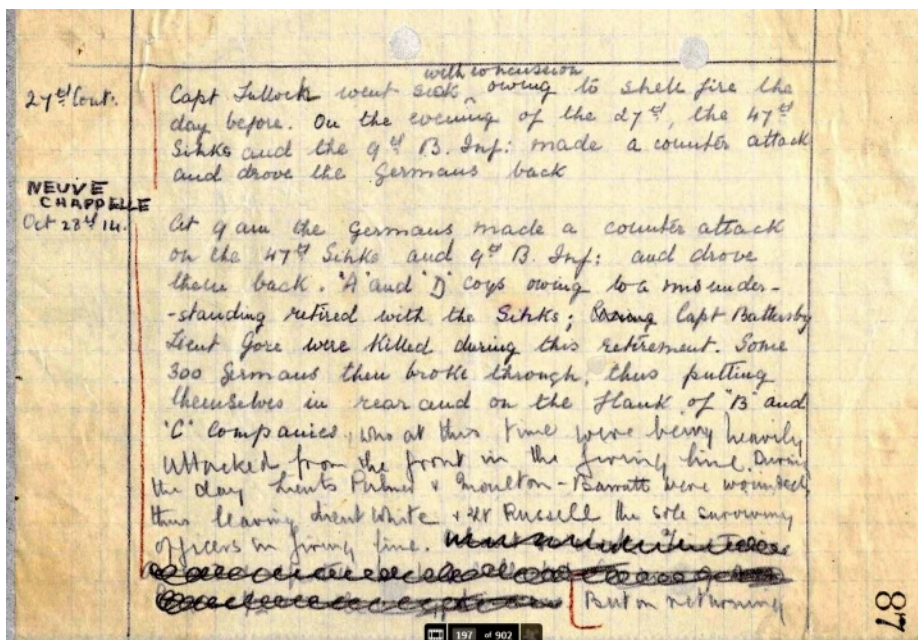 27th Cont:
with concussion
Capt Tullock went sick ^ owing to shell fire the
day before. On the evening of the 27th, the 47th
Sihks and the 9th B. Inf: made a counter attack
and drove the Germans back
NEUVE
CHAPPELLE
Oct 28th 14.
At 9 am the Germans made a counter attack
on the 47th Sihks and 9th B. Inf: and drove
them back. "A" and "D" coys owing to a misunder-
-standing retired with the Sihks; Capt Battersby
Lieut Gore were killed during this retirement. Some
300 Germans then broke through, thus putting
themselves in rear and on the flank of "B" and
"C" Companies, who at this time were being heavily
attacked from the front in the firing line. During
the day Lieuts Palmer & Moulton-Barratt were wounded,
thus leaving Lieut White & Lt Russell the sole surviving
officers in firing line.
But on returning
87
197 of 902